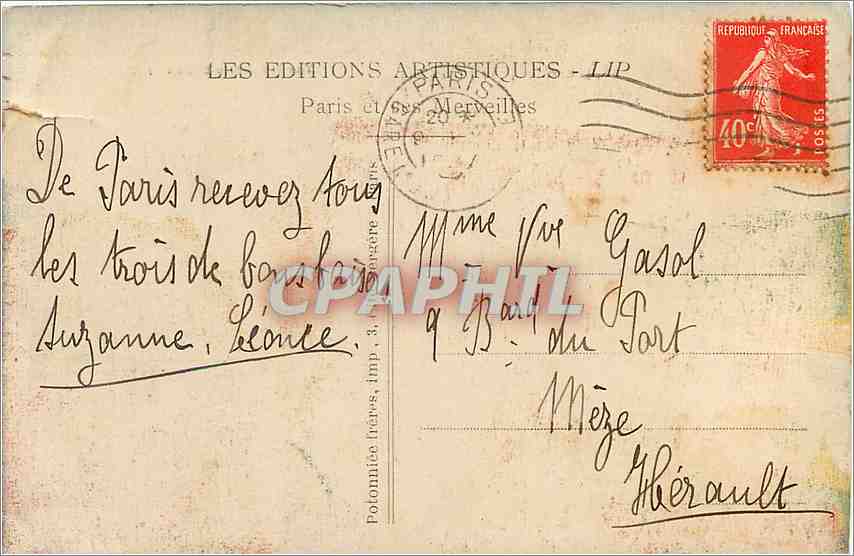 LES EDITIONS ARTISTIQUES - LIP
Paris et ses Merveilles
REPUBLIQUE FRANÇAISE
40c
POSTES
PARIS
20
GARE
De Paris recevez tous
les trois de bons baisers
Suzanne, Léonce.
Mme Vve Gasol
9 Bard du Port
Mèze
Hérault
Potonniée frères, imp, 3, Bergère Paris
CPAPHIL